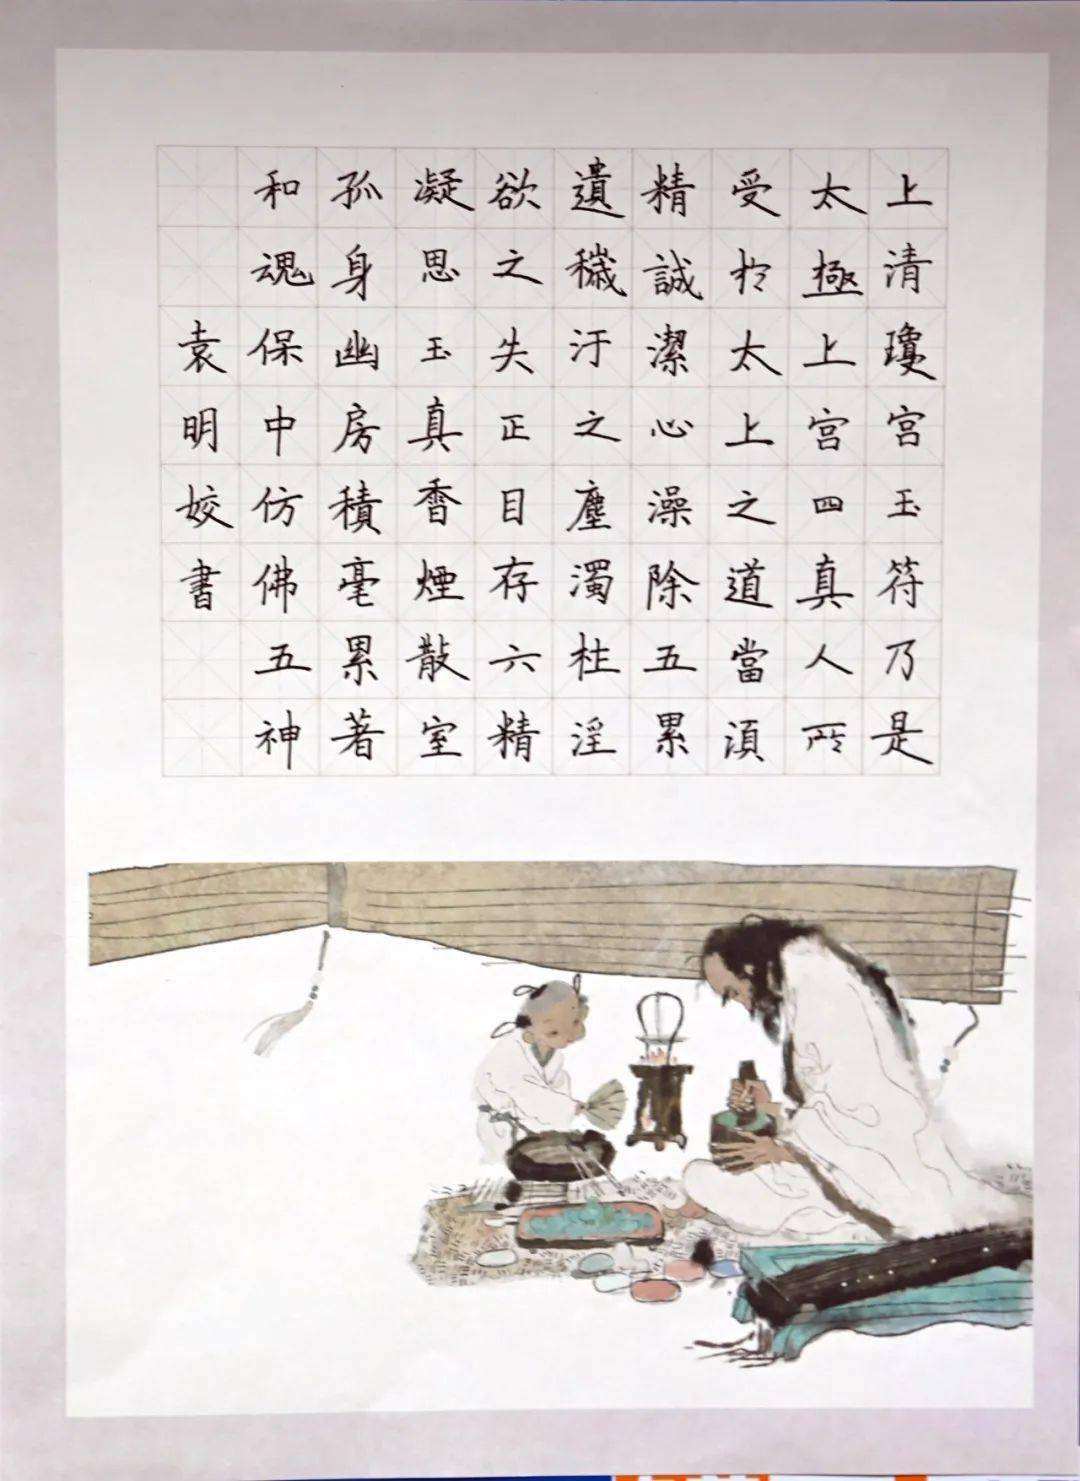 上清瓊宮玉符乃是
太極上宮四真人所
受於太上之道當須
精誠潔心澡除五累
遺穢汙之塵濁杜淫
欲之失正目存六精
凝思玉真香煙散室
孤身幽房積毫累著
和魂保中仿佛五神
袁明姣書